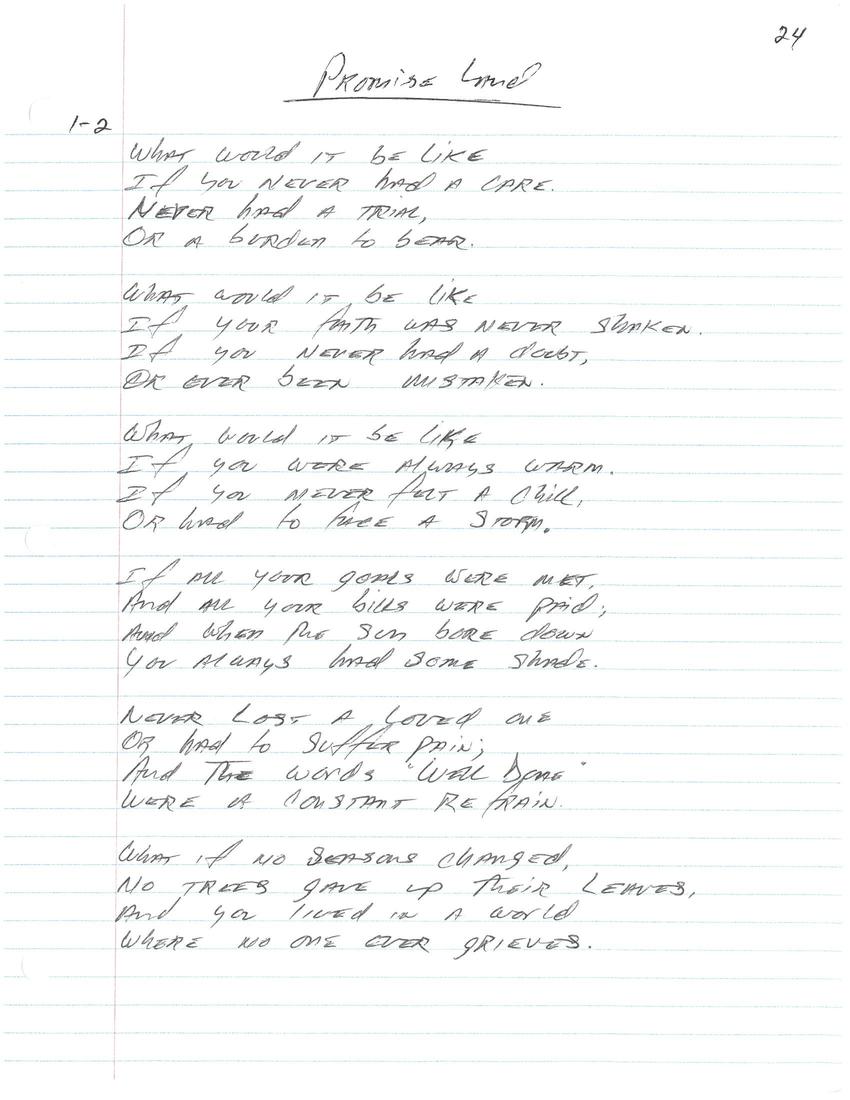 24
Promise Land
1-2
What would it be like
If you never had a care.
Never had a trial,
Or a burden to bear.
What would it be like
If your faith was never shaken.
If you never had a doubt,
Or ever been mistaken.
What would it be like
If you were always warm.
If you never felt a chill,
Or had to face a storm.
If all your goals were met,
And all your bills were paid;
And when the sun bore down
You always had some shade.
Never lost a loved one
Or had to suffer pain;
And the words "Well Done"
Were a constant refrain.
What if no seasons changed,
No trees gave up their leaves,
And you lived in a world
Where no one ever grieves.